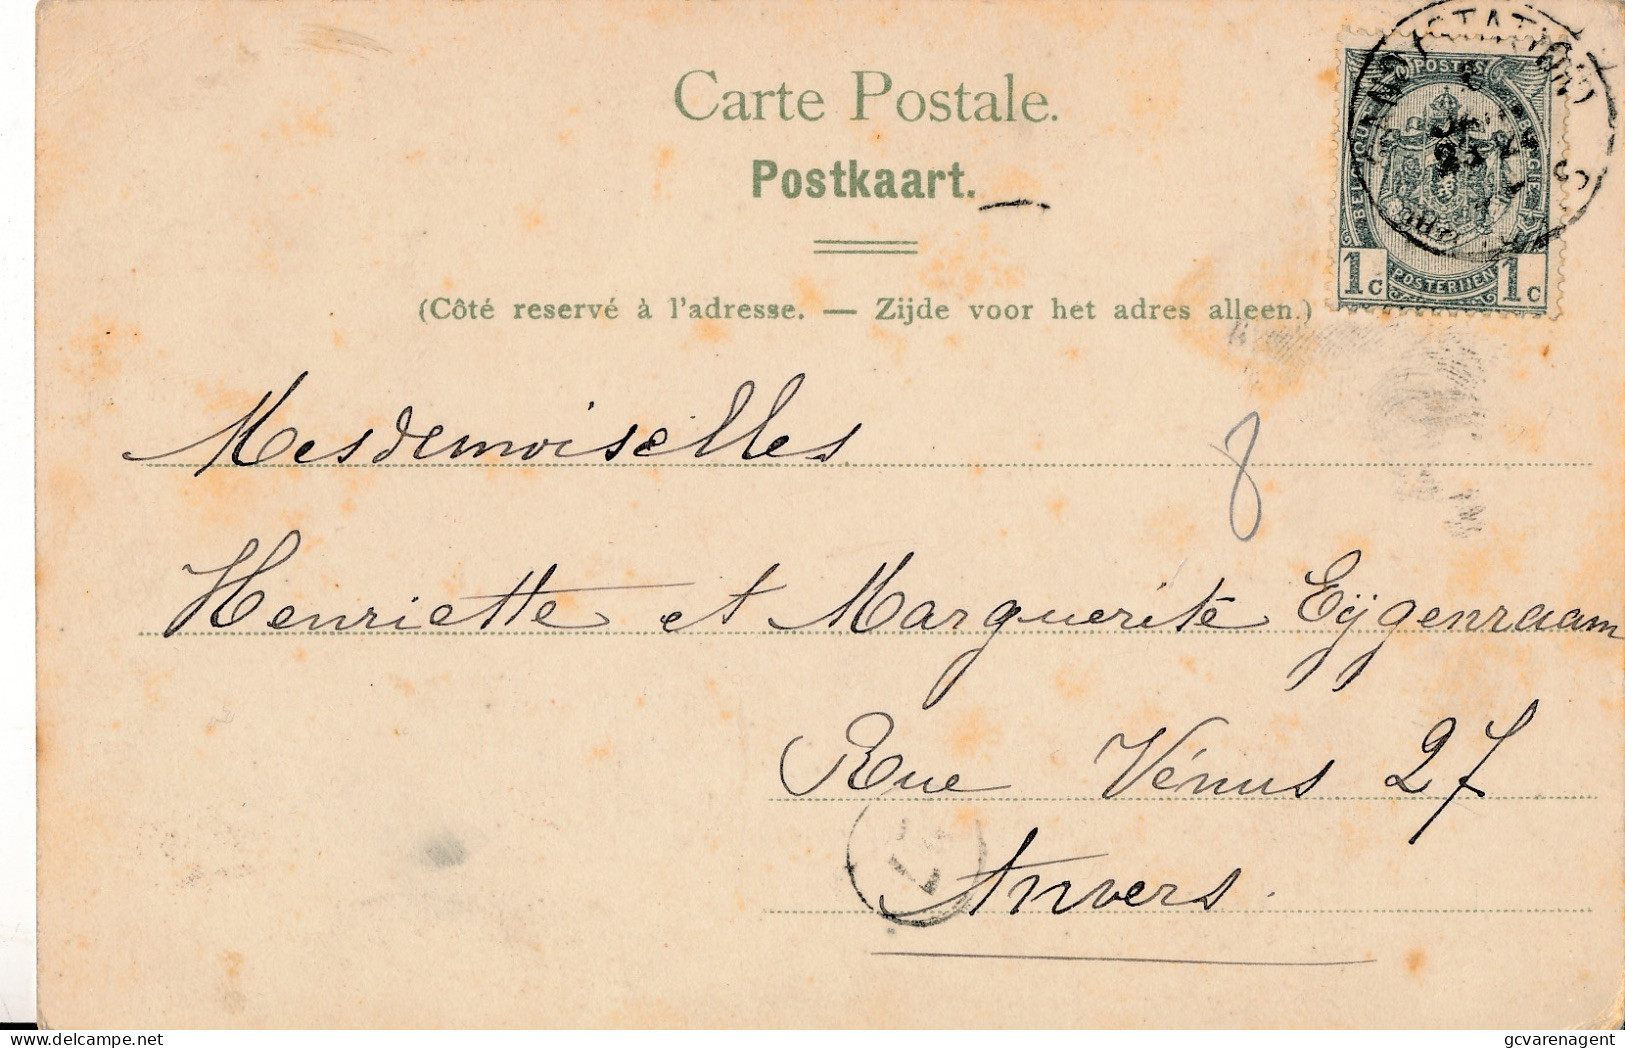 Carte Postale.
Postkaart.
(Côté reservé à l'adresse. — Zijde voor het adres alleen.)
POSTES
BELGIQUE
BELGIE
POSTERIJEN
1c 1c
(STATION)
Mesdemoiselles
8
Henriette et Marguerite Eÿgenraam
Rue Vénus 27
Anvers.
delcampe.net
gcvarenagent